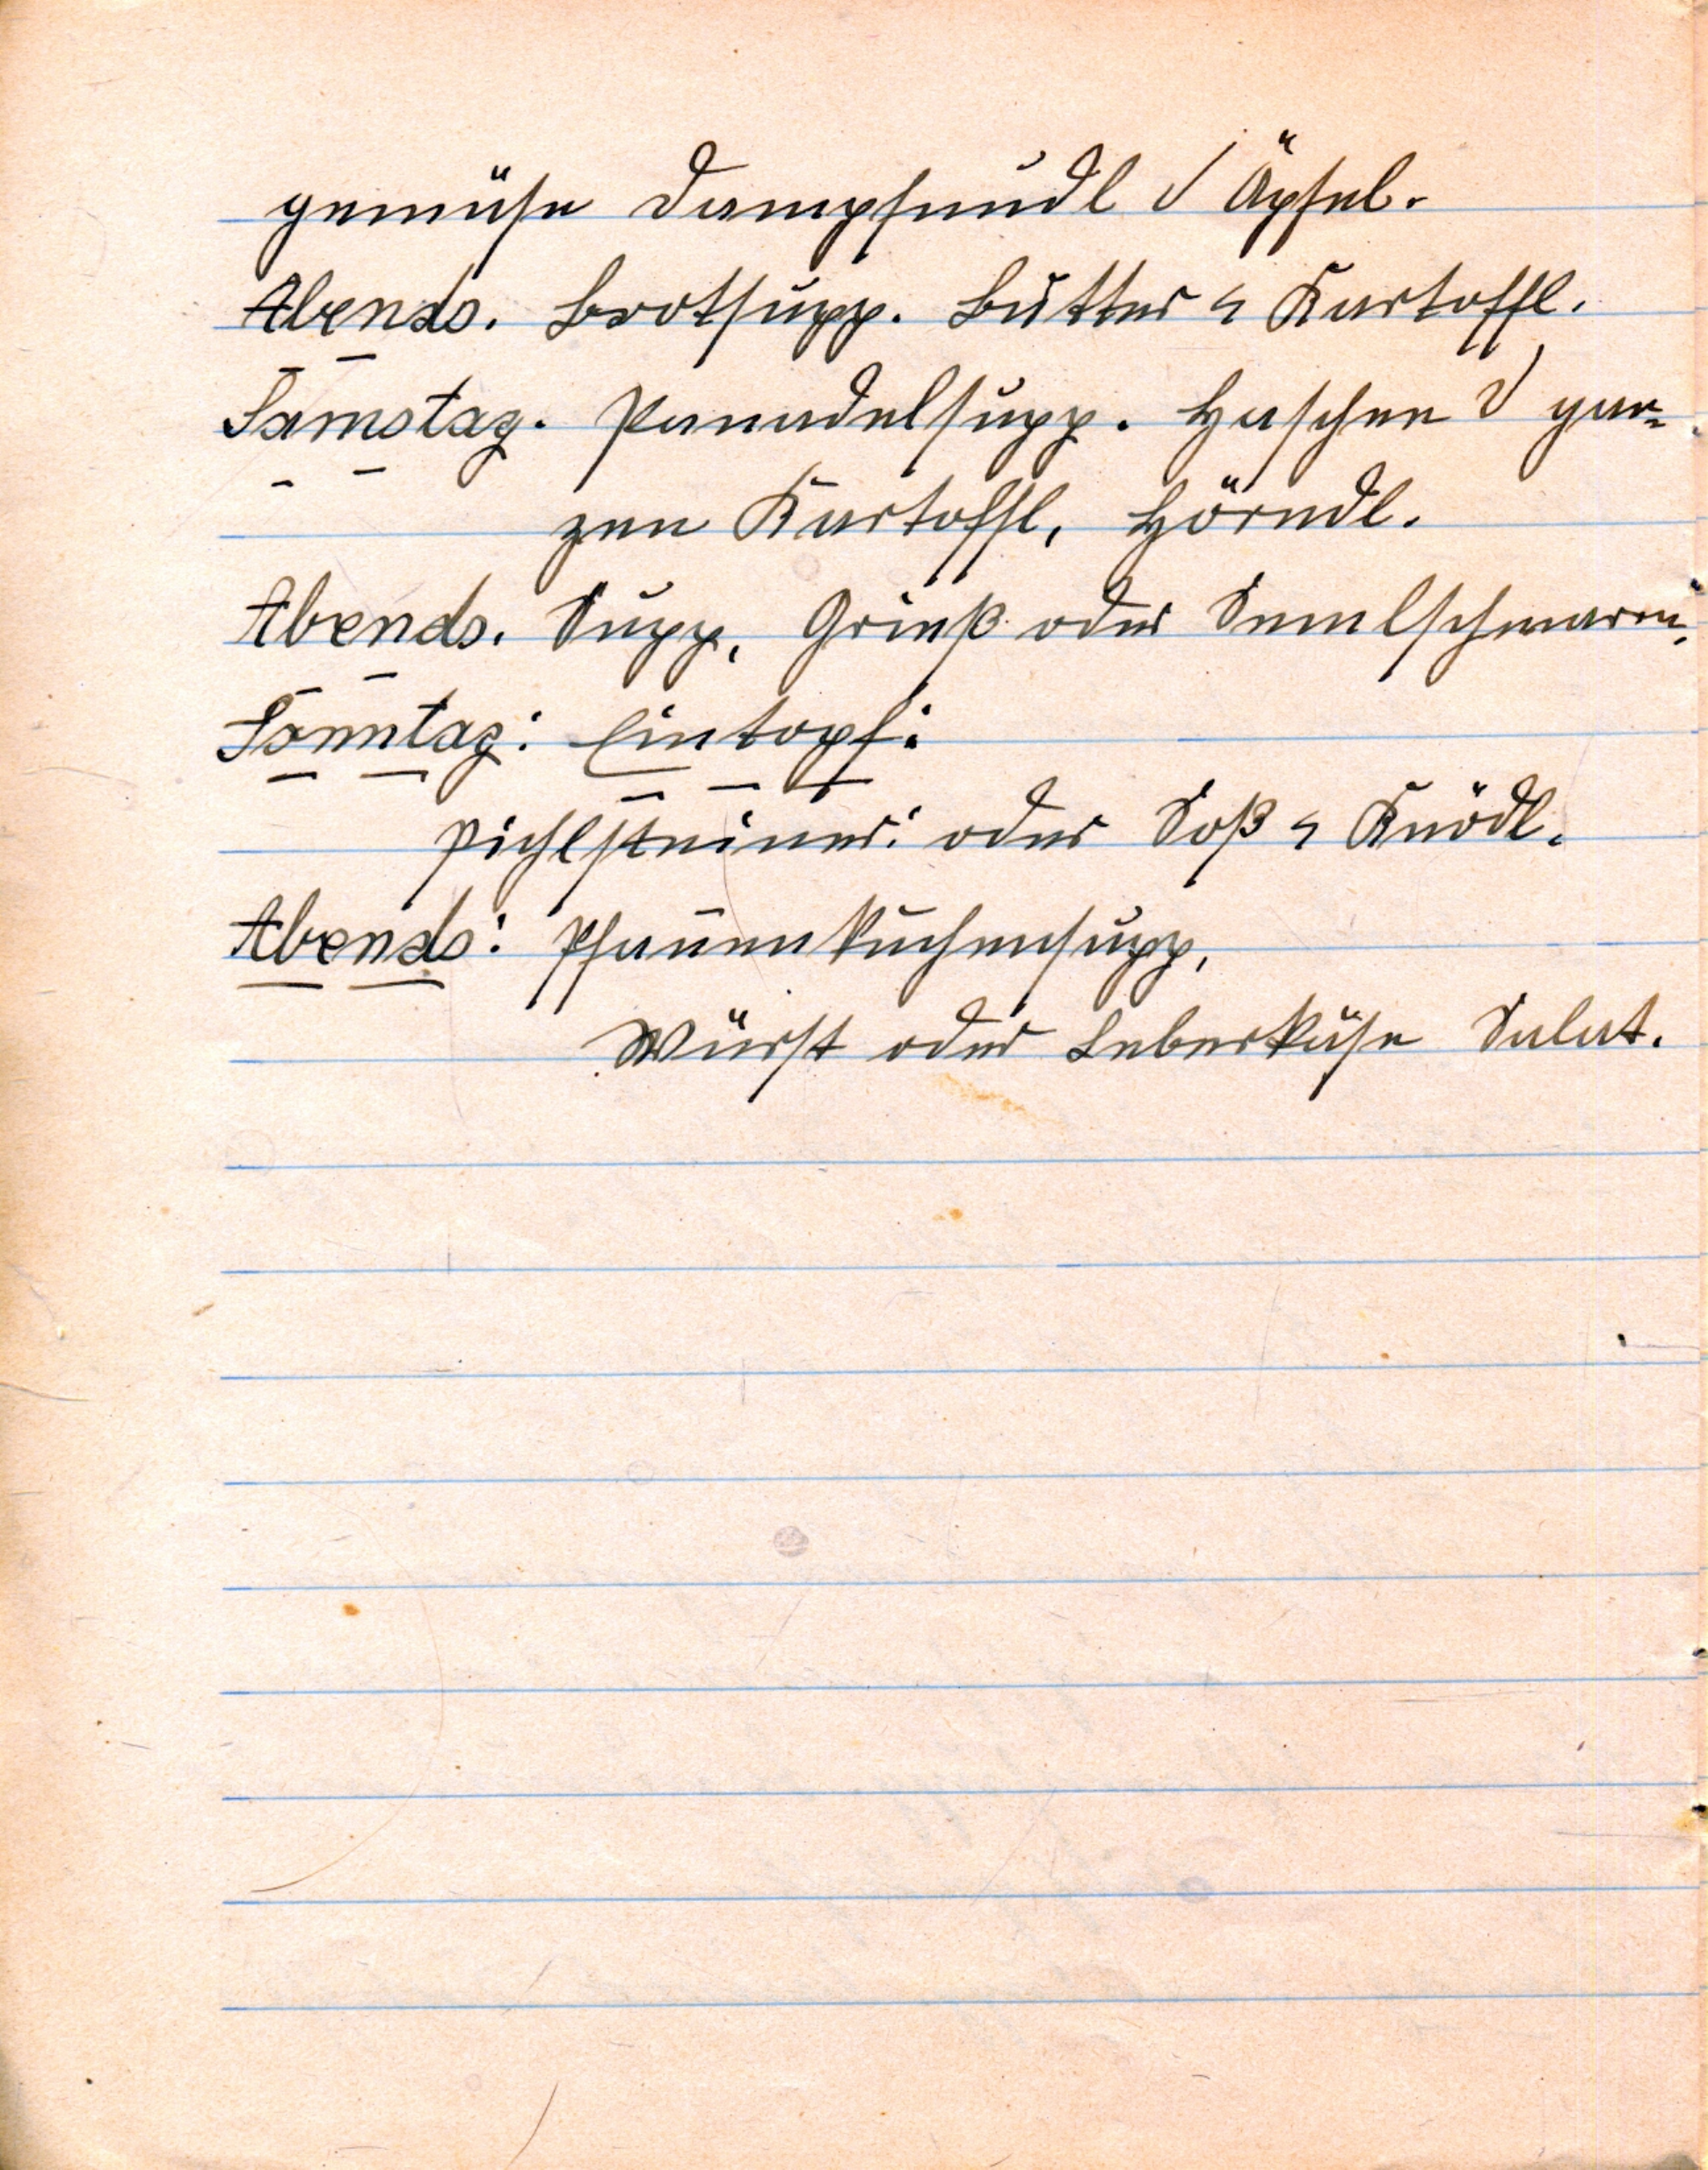 gemüse Dampfnudl d Äpfel.
Abends. Brotsupp. Butter u Kartoffl.
Samstag. Panadelsupp. Haschee d gan-
zen Kartoffl, Hörndl.
Abends. Supp, Grieß oder Semelschmarrn.
Sonntag: Eintopf:
Pichlsteiner: oder Soß u Knödl.
Abends: Pfannenkuchensupp,
Würst oder Leberkäse Salat.